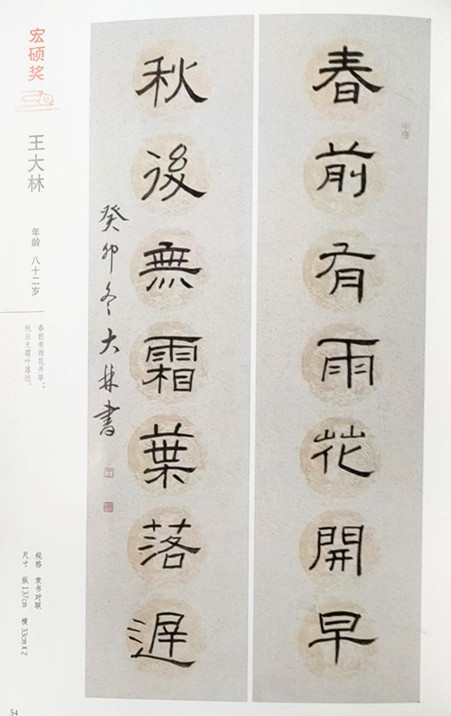 宏硕奖
王大林
年龄 八十二岁
春前有雨花开早；
秋后无霜叶落迟。
规格 隶书对联
尺寸 纵137cm 横33cm×2
春前有雨花開早
秋後無霜葉落遲
癸卯冬大林書
54